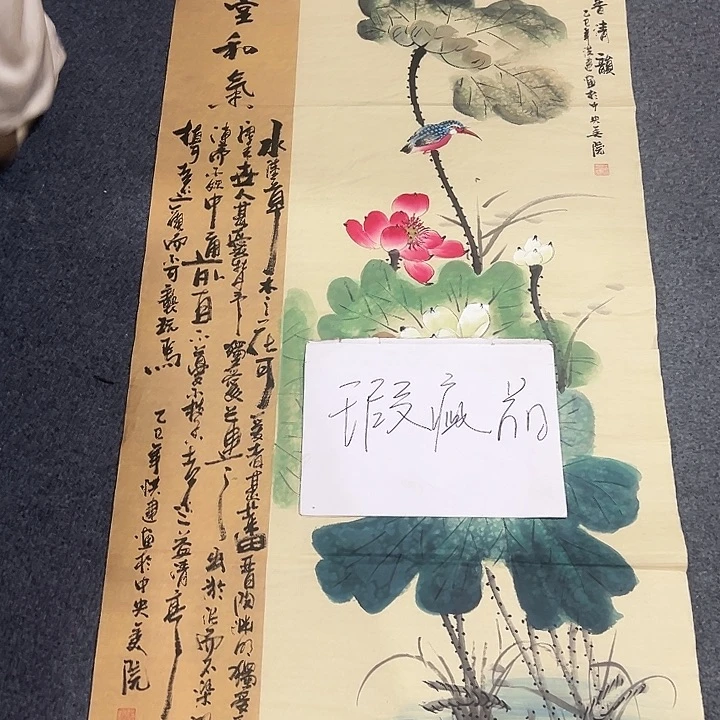 清韻
乙巳年洪建画於中央美院
堂和氣
水陸草木之花可愛者甚蕃晉陶淵明獨愛
世人甚愛牡丹獨愛蓮之出於淤而不染
漣而不妖中通外直不蔓不枝香遠益清亭
植可遠觀而不可褻玩焉
乙巳年洪建画於中央美院
瑕疵前